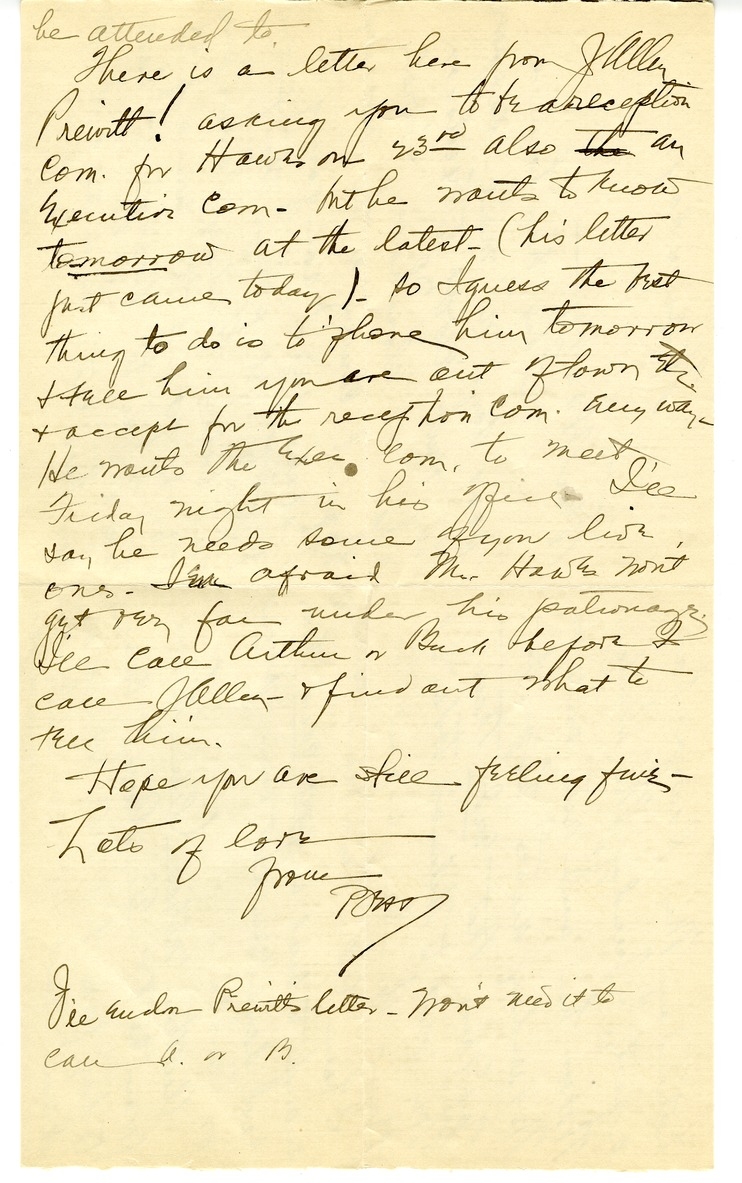 be attended to
There is a letter here from J Allen
Prewitt! asking you to be a reception
Com. for Hawks on 23rd also the an
Executive Com - but he wants to know
tomorrow at the latest - (his letter
just came today) - so I guess the best
thing to do is to 'phone him tomorrow
& tell him you are out of town
& accept for the reception Com. any way -
He wants the Exec. Com. to meet
Friday night in his office. I'll
say he needs some of you live
ones - I'm afraid Mr. Hawks won't
get very far under his patronage.
I'll call Arthur or Buck before I
call J Allen - & find out what to
tell him.
Hope you are still feeling fine -
Lots of love
from
Bess
I'll enclose Prewitt's letter - Won't need it to
call A. or B.